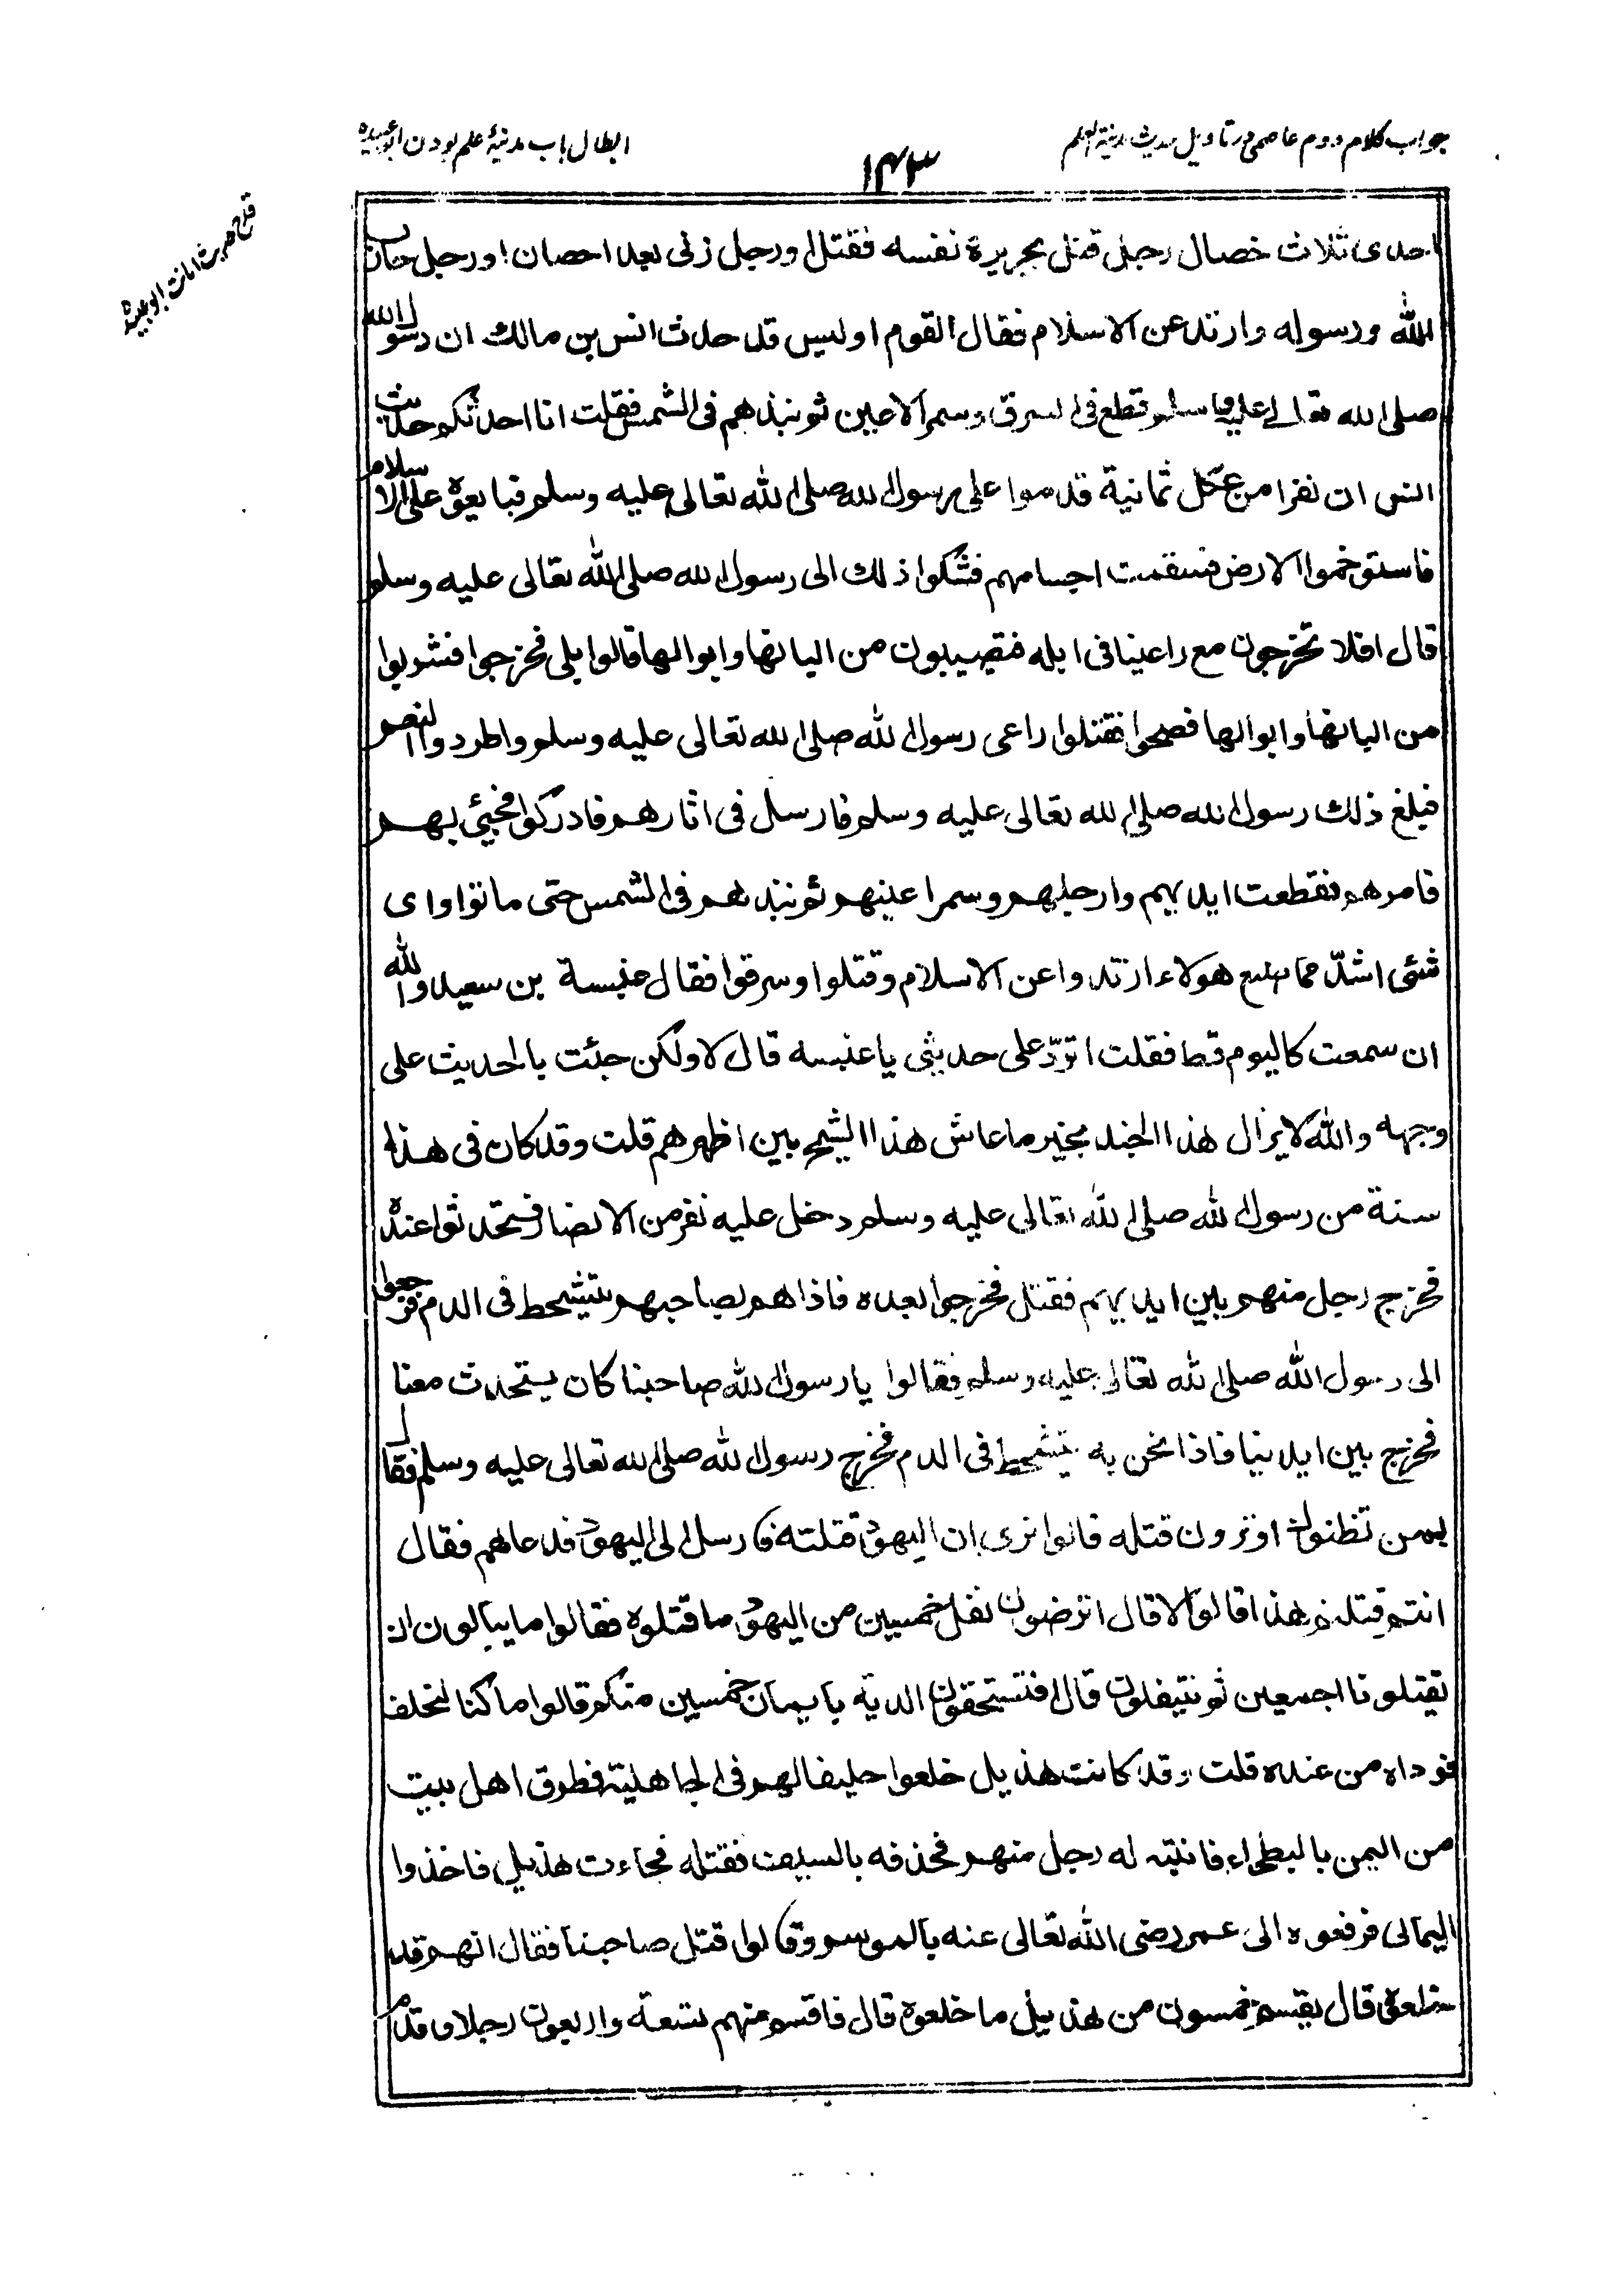 جواب كلام دوم عاصمی در تاویل حدیث مدینة العلم
۱۴۳
ابطال باب مدینۀ علم بودن ابو عبیده
قدح حدیث امانت ابو عبیده
احدى ثلاث خصال رجل قتل بجريرة نفسه فقتل اورجل زنى بعد احصان اورجل حارب
الله ورسوله وارتد عن الاسلام فقال القوم اوليس قد حدث انس بن مالك ان رسول الله
صلى الله تعالى عليه وسلم قطع فى السرق وسمر الاعين ثم نبذهم فى الشمس فقلت انا احدثكم حديث
انس ان نفرا من عكل ثمانية قدموا على رسول الله صلى الله تعالى عليه وسلم فبايعوه على الاسلام
فاستوخموا الارض فسقمت اجسامهم فشكوا ذلك الى رسول الله صلى الله تعالى عليه وسلم
قال افلا تخرجون مع راعينا فى ابله فتصيبون من البانها وابوالها قالوا بلى فخرجوا فشربوا
من البانها وابوالها فصحوا فقتلوا راعى رسول الله صلى الله تعالى عليه وسلم واطردوا النعم
فبلغ ذلك رسول الله صلى الله تعالى عليه وسلم فارسل فى اثارهم فادركوا فجيئ بهم
فامرهم فقطعت ايديهم وارجلهم وسمر اعينهم ثم نبذهم فى الشمس حتى ماتوا واى
شئى اشدّ مما صنع هولاء ارتدوا عن الاسلام وقتلوا وسرقوا فقال عنبسة بن سعيد والله
ان سمعت كاليوم قط فقلت اتردّ على حديثى يا عنبسه قال لا ولكن جئت بالحديث على
وجهه والله لا يزال هذا الجند بخير ما عاش هذا الشيخ بين اظهرهم قلت وقد كان فى هذا
سنة من رسول الله صلى الله تعالى عليه وسلم دخل عليه نفر من الانصار فتحدثوا عنده
فخرج رجل منهم بين ايديهم فقتل فخرجوا بعده فاذاهم بصاحبهم يتشحط فى الدم فرجعوا
الى رسول الله صلى الله تعالى عليه وسلم فقالوا يا رسول الله صاحبنا كان يتحدث معنا
فخرج بين ايدينا فاذا نحن به يتشحط فى الدم فخرج رسول الله صلى الله تعالى عليه وسلم فقال
بمن تظنون اوترون قتله قالوا نرى ان اليهود قتلته فارسل الى اليهود فدعاهم فقال
انتم قتلتم هذا قالوا لا قال اترضون نفل خمسين من اليهود ما قتلوه فقالوا ما يبالون ان
يقتلونا اجمعين ثم ينتفلون قال افتستحقون الدية بايمان خمسين منكم قالوا ما كنا لنحلف
فوداه من عنده قلت وقد كانت هذيل خلعوا حليفا لهم فى الجاهلية فطرق اهل بيت
من اليمن بالبطحاء فانتبه له رجل منهم فحذفه بالسيف فقتله فجاءت هذيل فاخذوا
اليمانى فرفعوه الى عمر رضى الله تعالى عنه بالموسم وقالوا قتل صاحبنا فقال انهم قد
خلعوه قال يقسم خمسون من هذيل ما خلعوه قال فاقسم منهم تسعة واربعون رجلا وقدم